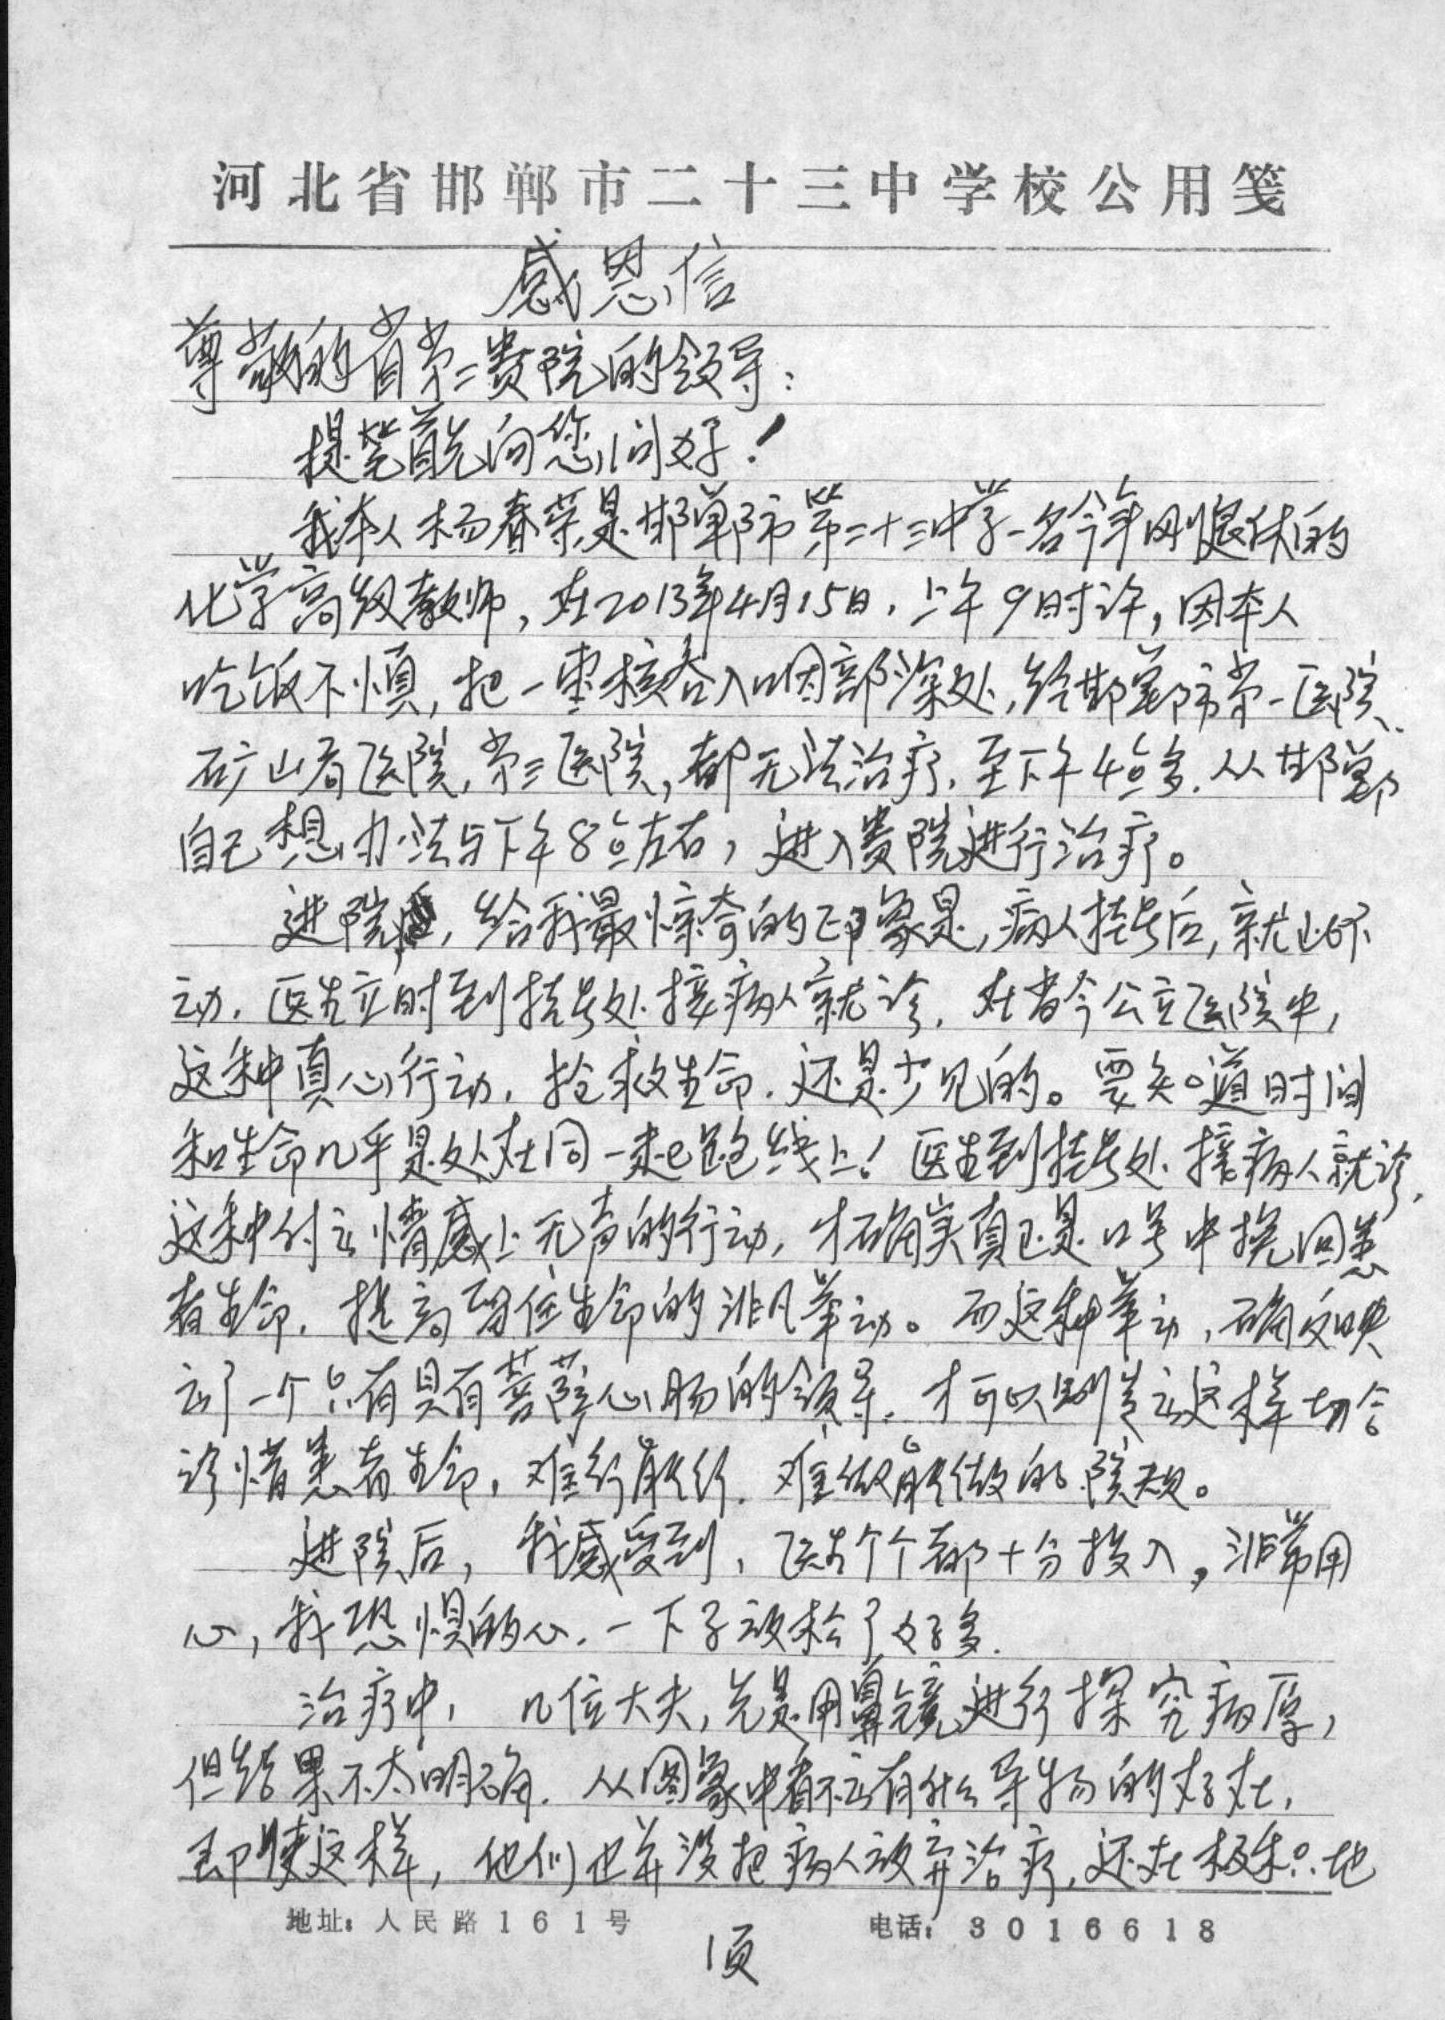 河北省邯郸市二十三中学校公用笺
感恩信
尊敬的省第二贵院的领导：
提笔首先向您问好！
我本人杨春荣是邯郸市第二十三中学一名今年刚退休的
化学高级教师，在2013年4月15日，上午9时许，因本人
吃饭不慎，把一枣核吞入咽部深处，经邯郸市第一医院、
矿山局医院，第三医院，都无法治疗，至下午4点多，从邯郸
自己想办法与下午8点左右，进入贵院进行治疗。
进院，给我最惊奇的印象是，病人挂号后，就此不
动，医生立时到挂号处接病人就诊，在当今公立医院中，
这种真心行动，抢救生命，还是少见的。要知道时间
和生命几乎是处在同一起跑线上！医生到挂号处接病人就诊，
这种付出情感上无声的行动，才确实真正是口号中挽回患
者生命，提高留住生命的非凡举动。而这种举动，确反映
出了一个只有具有菩萨心肠的领导，才可以制定出这样切合
珍惜患者生命，难行能行，难做能做的院规。
进院后，我感受到，医生个个都十分投入，非常用
心，我恐惧的心，一下子放松了好多．
治疗中，几位大夫，先是用鼻镜进行探究病厚，
但结果不太明确．从图象中看不出有什么异物的存在，
即使这样，他们也并没把病人放弃治疗，还在极积地
地址：人民路161号
电话：3016618
1页